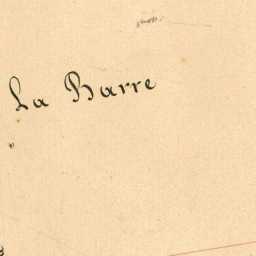 La Barre